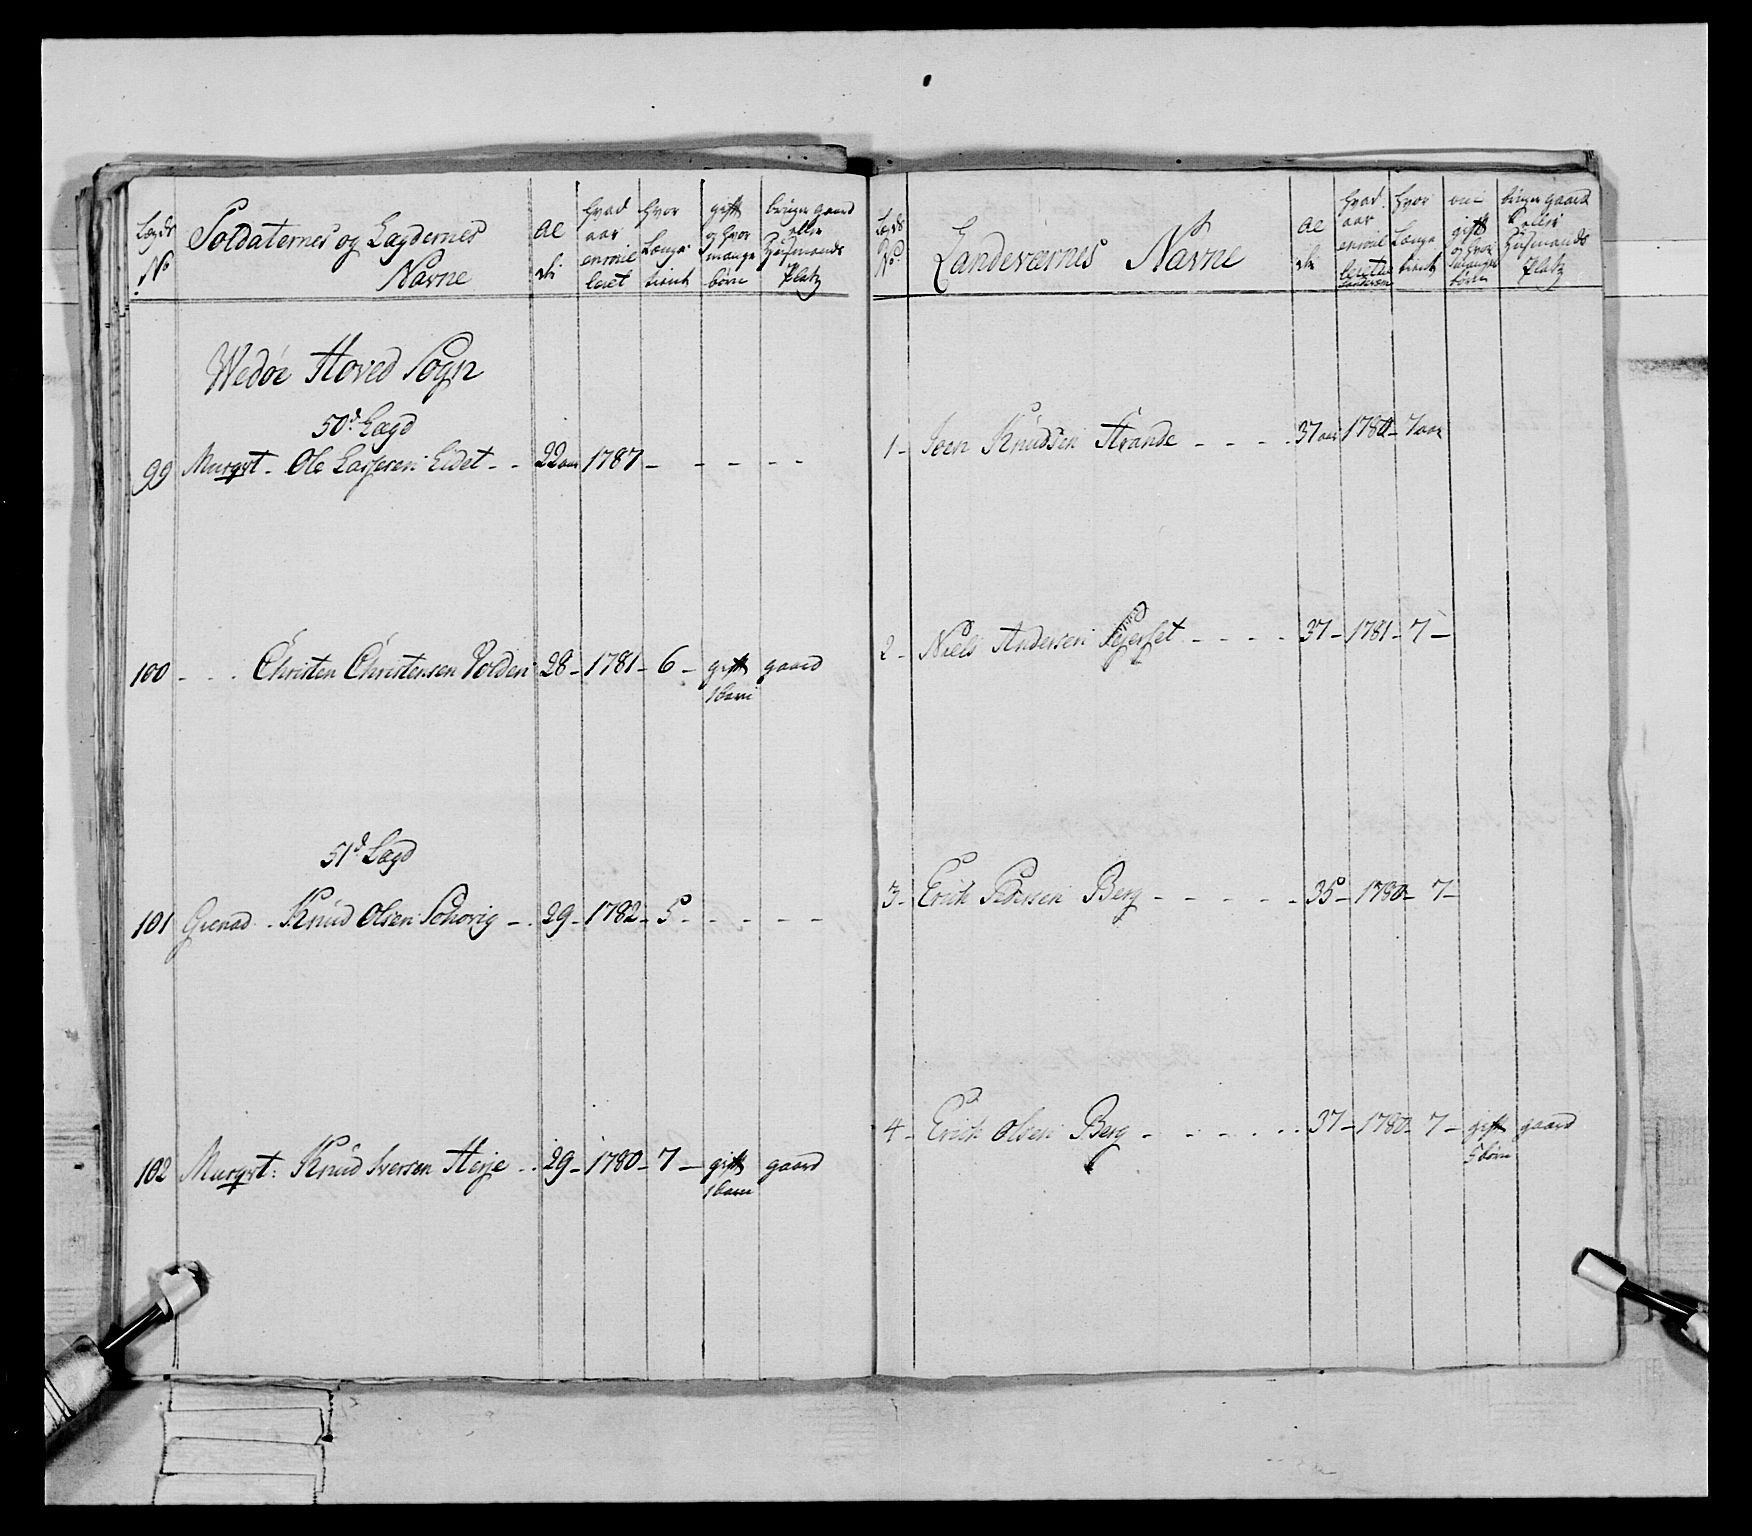 Lægds No
Soldaternes og Lægdernes Navne
Al der
hvad aar enroul leret
hvor Længe tient
gift og hvor mange børn
bruger gaard eller Huusmands Platz
Wedøe Hoved Sogn
50d Lægd
99 Murqvt. Ole Larssen Eidet - - 22 aar 1787 - - - - -
100 - - Christen Christensen Volden 28 - 1781 - 6 - gift gaard
1 barn
51d Lægd
101 Grenad. Knud Olsen Schorig - - 29 - 1782 - 5 - - - -
102 Murqvt: Knud Iversen Herje - - 29 - 1780 - 7 - gift gaard
1 barn
Lægds No
Landeværnes Navne
Al der
hvad aar enroul leret
hvor Længe tient
om gift og hvor mange børn
bruger gaard eller Huusmands Platz
1 - Joen Knudsen Strande - - - - 37 aar 1780 - 7 aar
2 - Niels Andersen - - - - 37 - 1781 - 7 -
3 - Erich Pedersen Berg - - - - - 35 - 1780 - 7 -
4 - Erich Olsen Berg - - - - - 37 - 1780 - 7 - gift gaard
5 børn